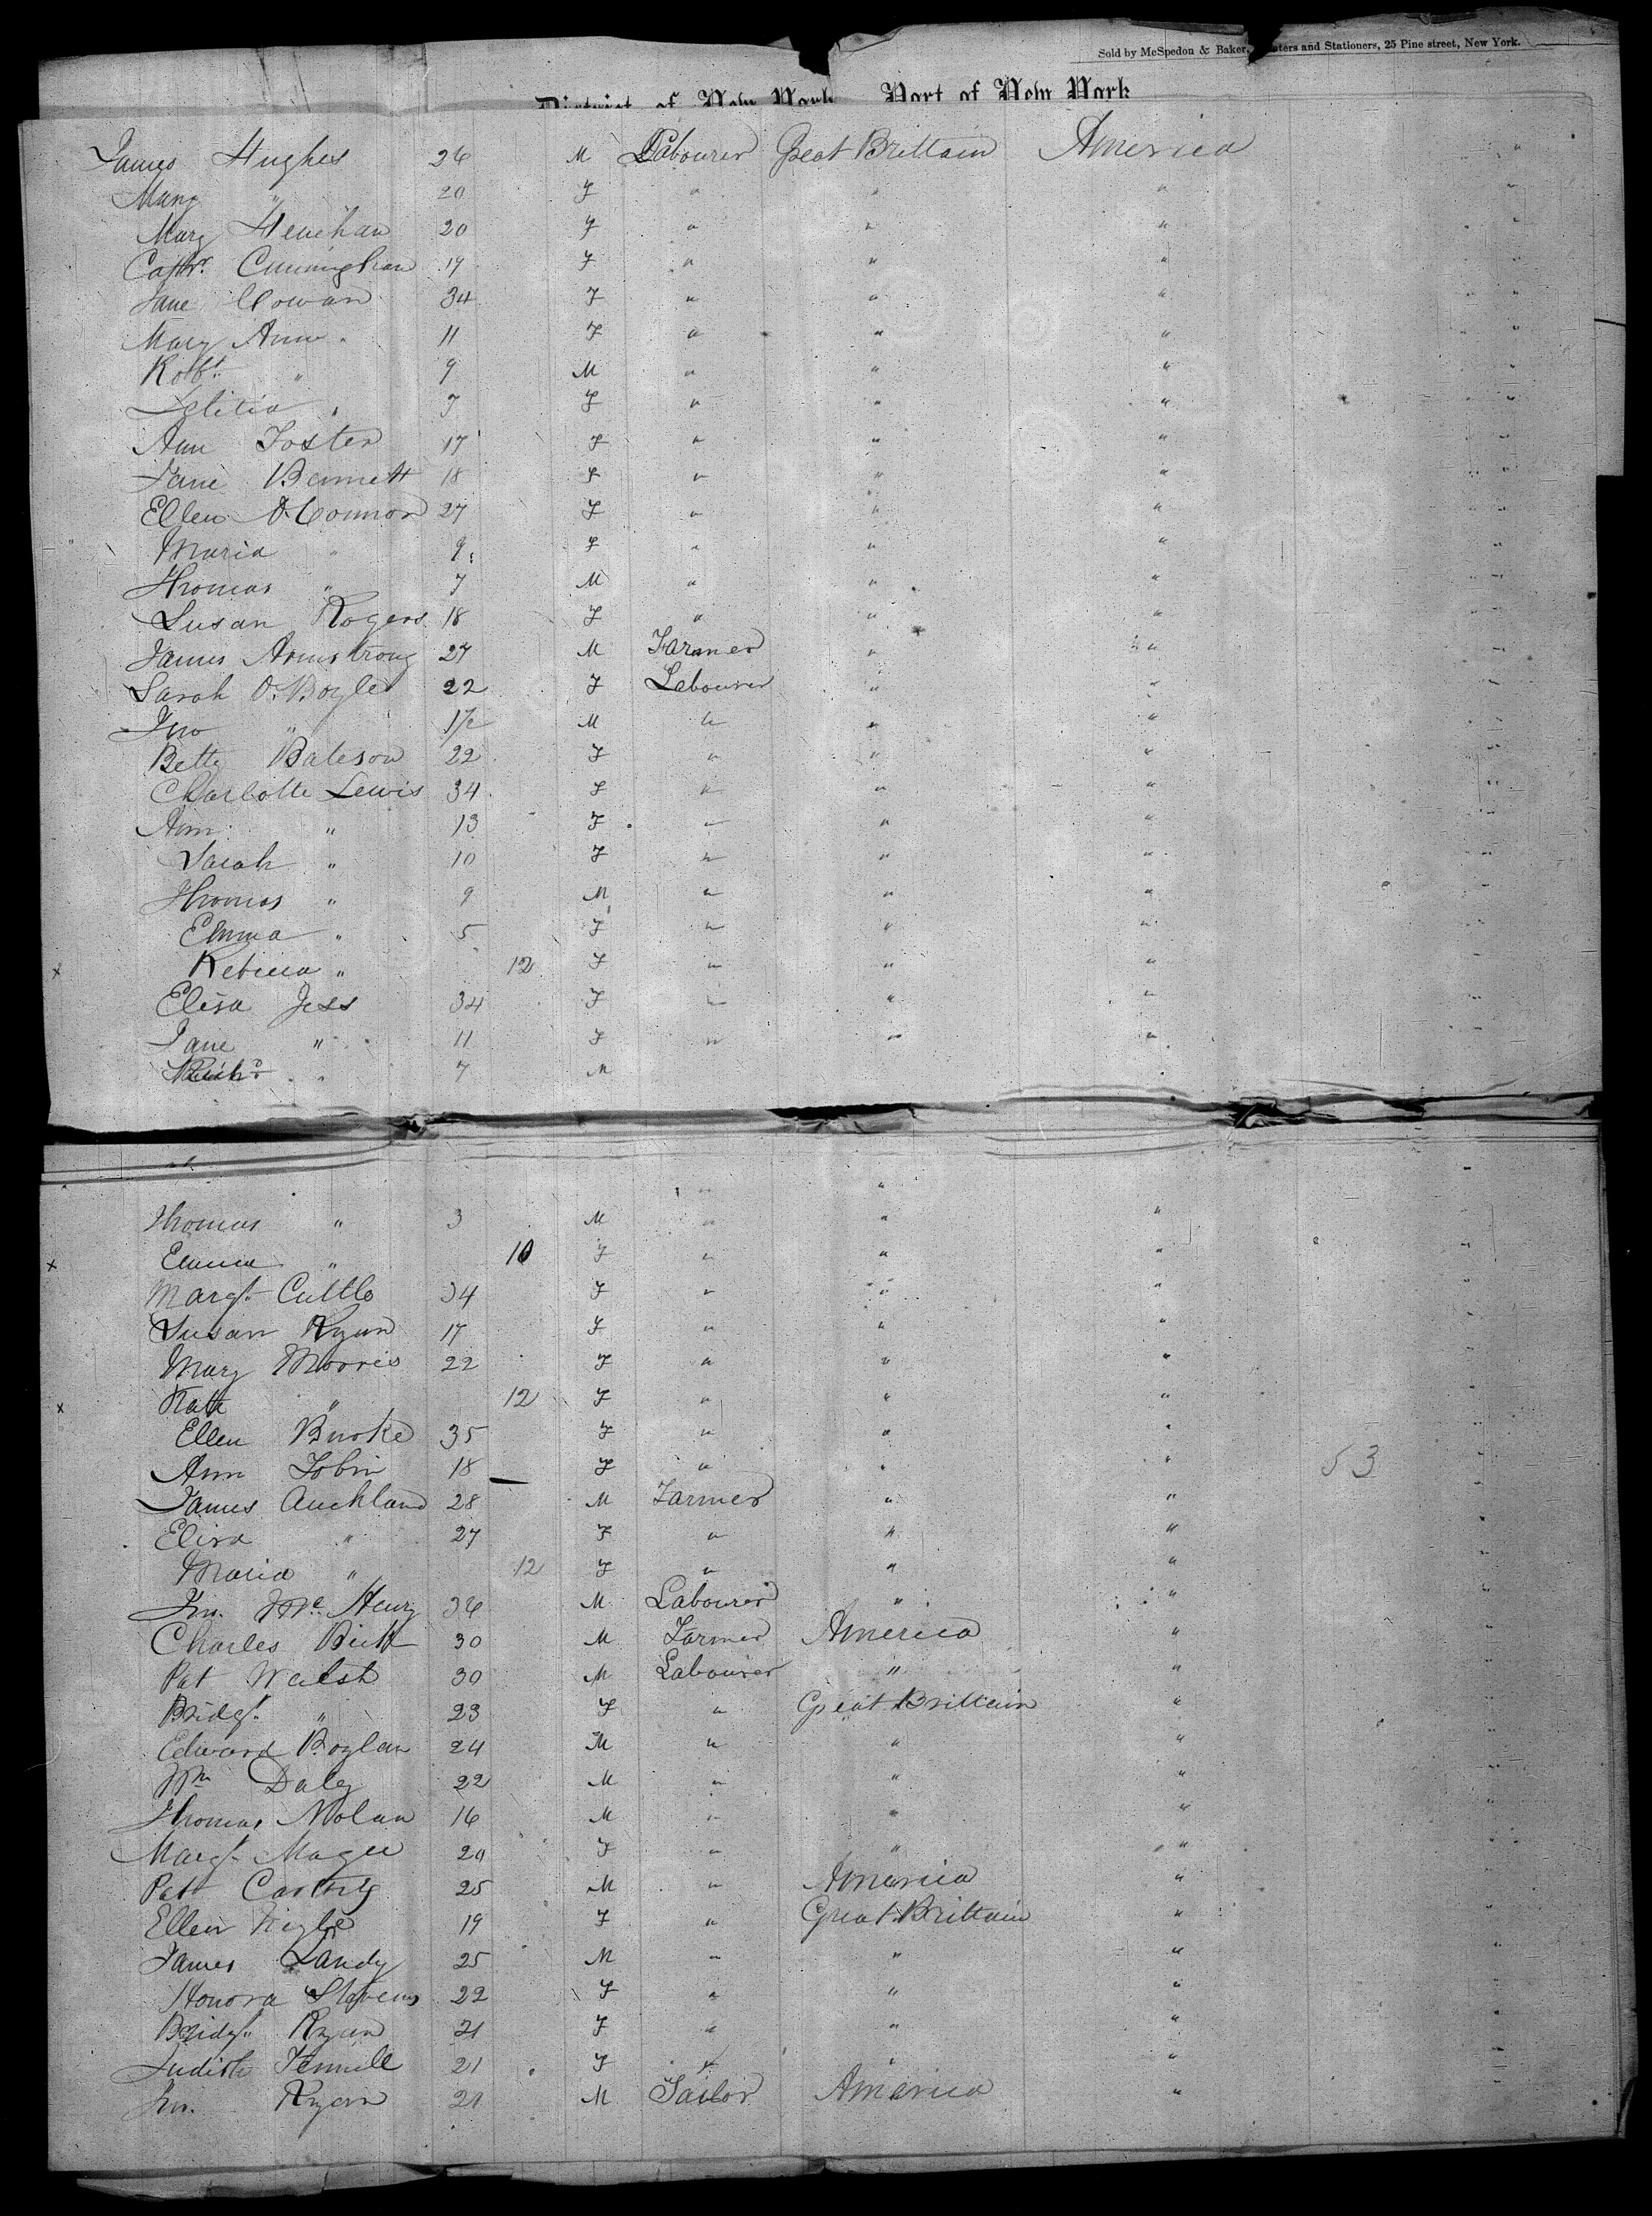 Sold by McSpedon & Baker, Stationers, 25 Pine street, New York.
District of New York Port of New York
James Hughes 26 M Labourer Great Brittain America
Mary " 20 F " " " "
Mary Henehan 20 F " " " "
Cathr. Cunningham 19 F " " " "
Jane Cowan 34 F " " " "
Mary Ann " 11 F " " " "
Robt. " 9 M " " " "
Letitia " 7 F " " " "
Ann Foster 17 F " " " "
Jane Bennett 18 F " " " "
Ellen O.Connor 27 F " " " "
Maria " 9 F " " " "
Thomas " 7 M " " " "
Susan Rogers 18 F " " " "
James Armstrong 27 M Farmer " " "
Sarah O.Boyle 22 F Labourer " " "
Jno " 1/2 M " " " "
Betty Bateson 22 F " " " "
Charlotte Lewis 34 F " " " "
Ann " 13 F " " " "
Sarah " 10 F " " " "
Thomas " 9 M " " " "
Emma " 5 F " " " "
x Rebecca " 12 F " " " "
Elisa Jess 34 F " " " "
Jane " 11 F " " " "
Richd. " 7 M
" " " "
Thomas " 3 M " " " "
x Emma " 10 F " " " "
Margt. Cuttle 34 F " " " "
Susan Ryan 17 F " " " "
Mary Morris 22 F " " " "
x Kate " 12 F " " " "
Ellen Burke 35 F " " " "
Ann Tobin 18 F " " " 53 "
James Auckland 28 M Farmer " " "
Elisa " 27 F " " " "
Maria " 12 F " " " "
Jno. Mc Henry 36 M Labourer " " "
Charles 30 M Farmer America " "
Pat Walsh 30 M Labourer " " "
Bridgt. " 23 F " Great Brittain " "
Edward Boylan 24 M " " " "
Wm Daley 22 M " " " "
Thomas Nolan 16 M " " " "
Margt. Magee 20 F " " " "
Patt 25 M " America " "
Ellen 19 F " Great Brittain " "
James Landy 25 M " " " "
Honora Stevens 22 F " " " "
Bridgt. Ryan 21 F " " " "
Judith 21 F " " " "
Jno. Ryan 21 M Tailor America " "